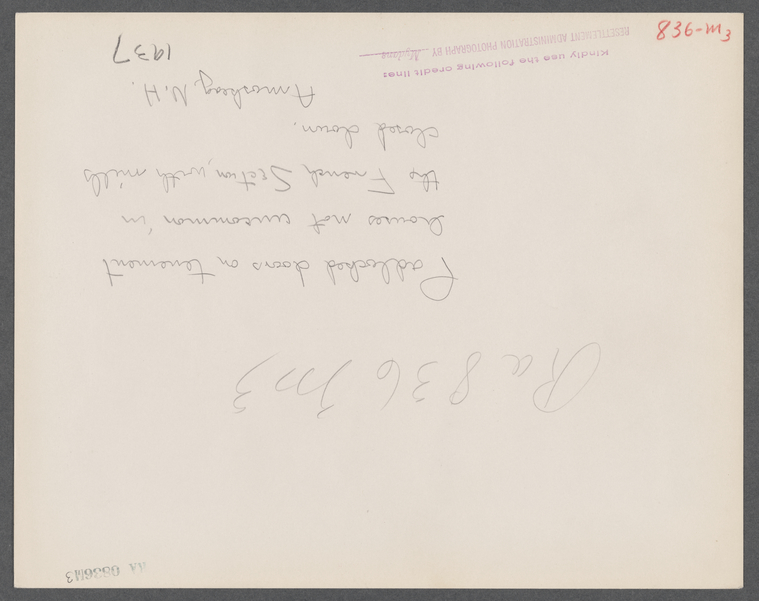 836-M3
Ra 836 M3
Padlocked doors on tenement
houses not uncommon in
the French Section, with mills
closed down.
Amoskeag, N.H.
1937
Kindly use the following credit line:
RESETTLEMENT ADMINISTRATION PHOTOGRAPH BY Mydans
AA 0836M3